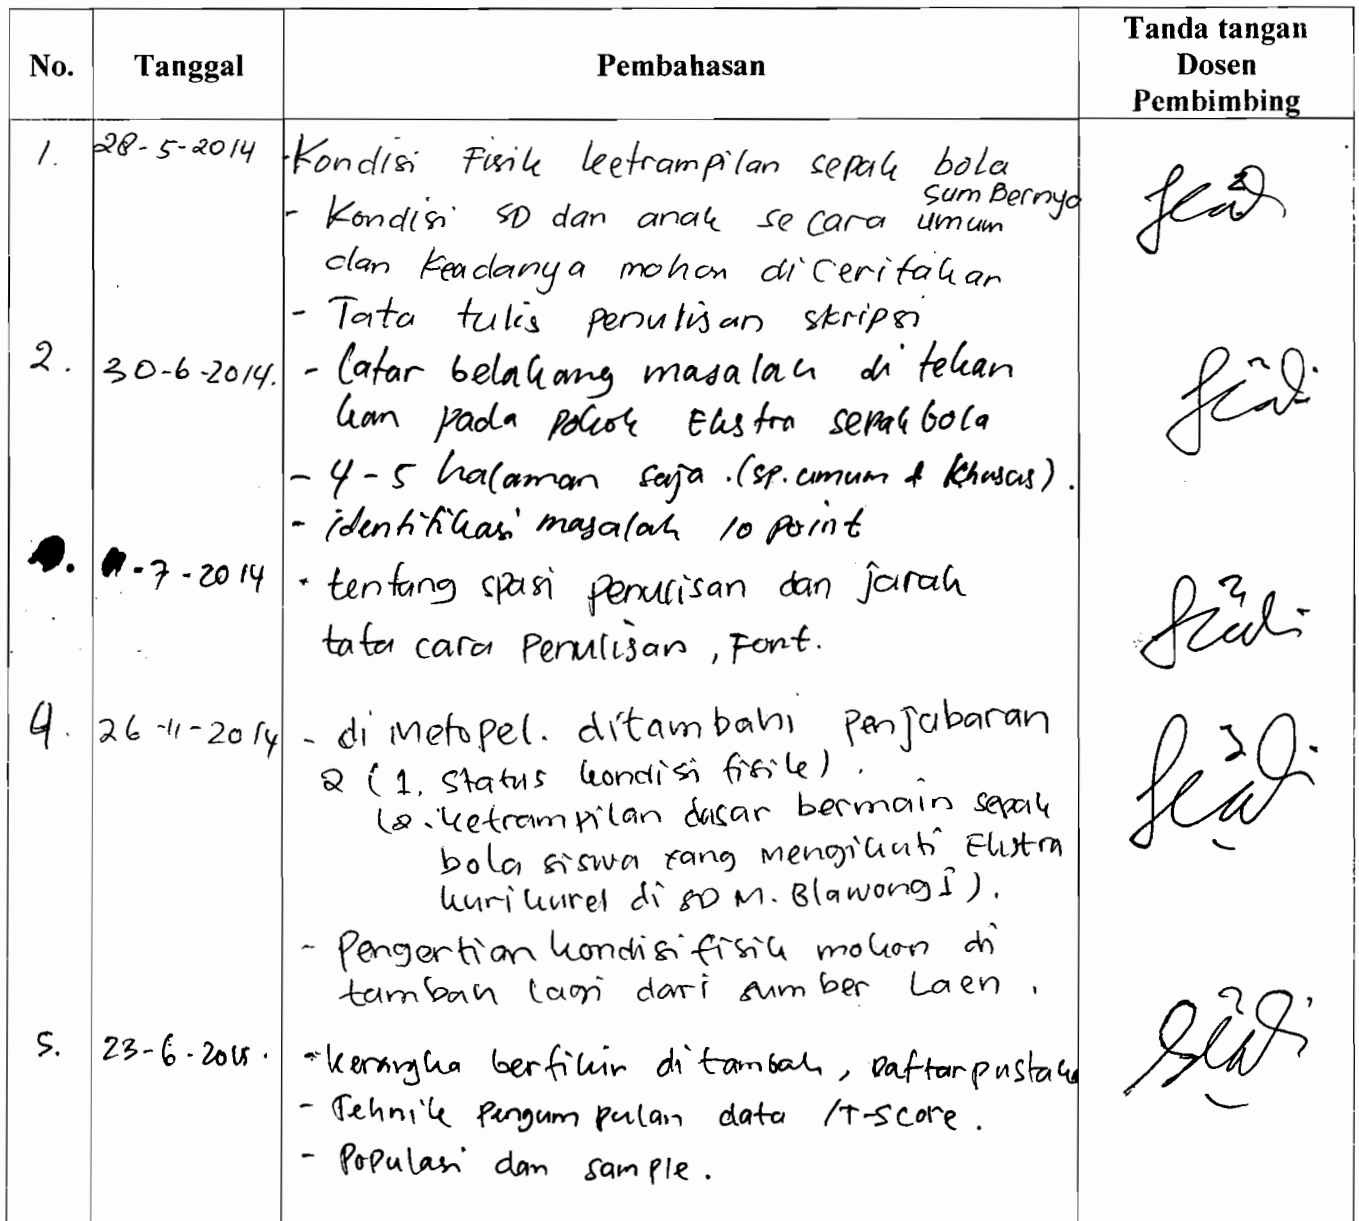 No. Tanggal Pembahasan Tanda tangan Dosen Pembimbing
1. 28-5-2014 - Kondisi Fisik ketrampilan sepak bola
sumBernya
- Kondisi SD dan anak secara umum
dan keadanya mohon diceritakan
- Tata tulis penulisan skripsi
2. 30-6-2014. - latar belakang masalah di tekan
kan pada pokok Ekstra sepak bola
- 4-5 halaman saja. (sp. umum & khusus).
- identifikasi masalah 10 point
-7-2014 - tentang spasi penulisan dan jarak
tata cara Penulisan, Font.
4. 26-11-2014 - di Metopel. ditambahi penjabaran
2 (1. Status kondisi fisik).
(2. ketrampilan dasar bermain sepak
bola siswa yang mengikuti Ekstra
kurikurel di SD M. Blawong I).
- Pengertian kondisi fisik mohon di
tambah lagi dari sumber Laen.
5. 23-6-2015. - kerangka berfikir ditambah, Daftar pustaka
- Tehnik pengumpulan data /T-score.
- Populasi dan sample.